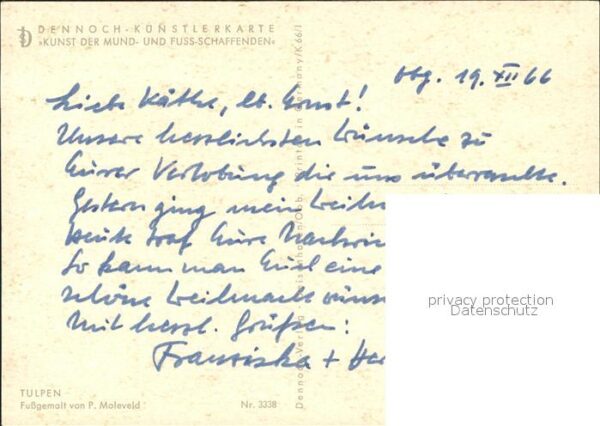 DENNOCH-KÜNSTLERKARTE
»KUNST DER MUND- UND FUSS-SCHAFFENDEN«
Obg. 19. XII 66
Liebe Käthe, lb. Ernst!
Unsere herzlichsten Wünsche zu
Eurer Verlobung die uns überraschte.
Gestern ging mein Weih
Heute traf Eure Nachri
So kann man Euch eine
schöne Weihnacht wüns
Mit herzl. Grüßen:
Franziska +
privacy protection
Datenschutz
TULPEN
Fußgemalt von P. Moleveld
Nr. 3338
Dennoch-Verlag
Printed in Germany/K 66/1